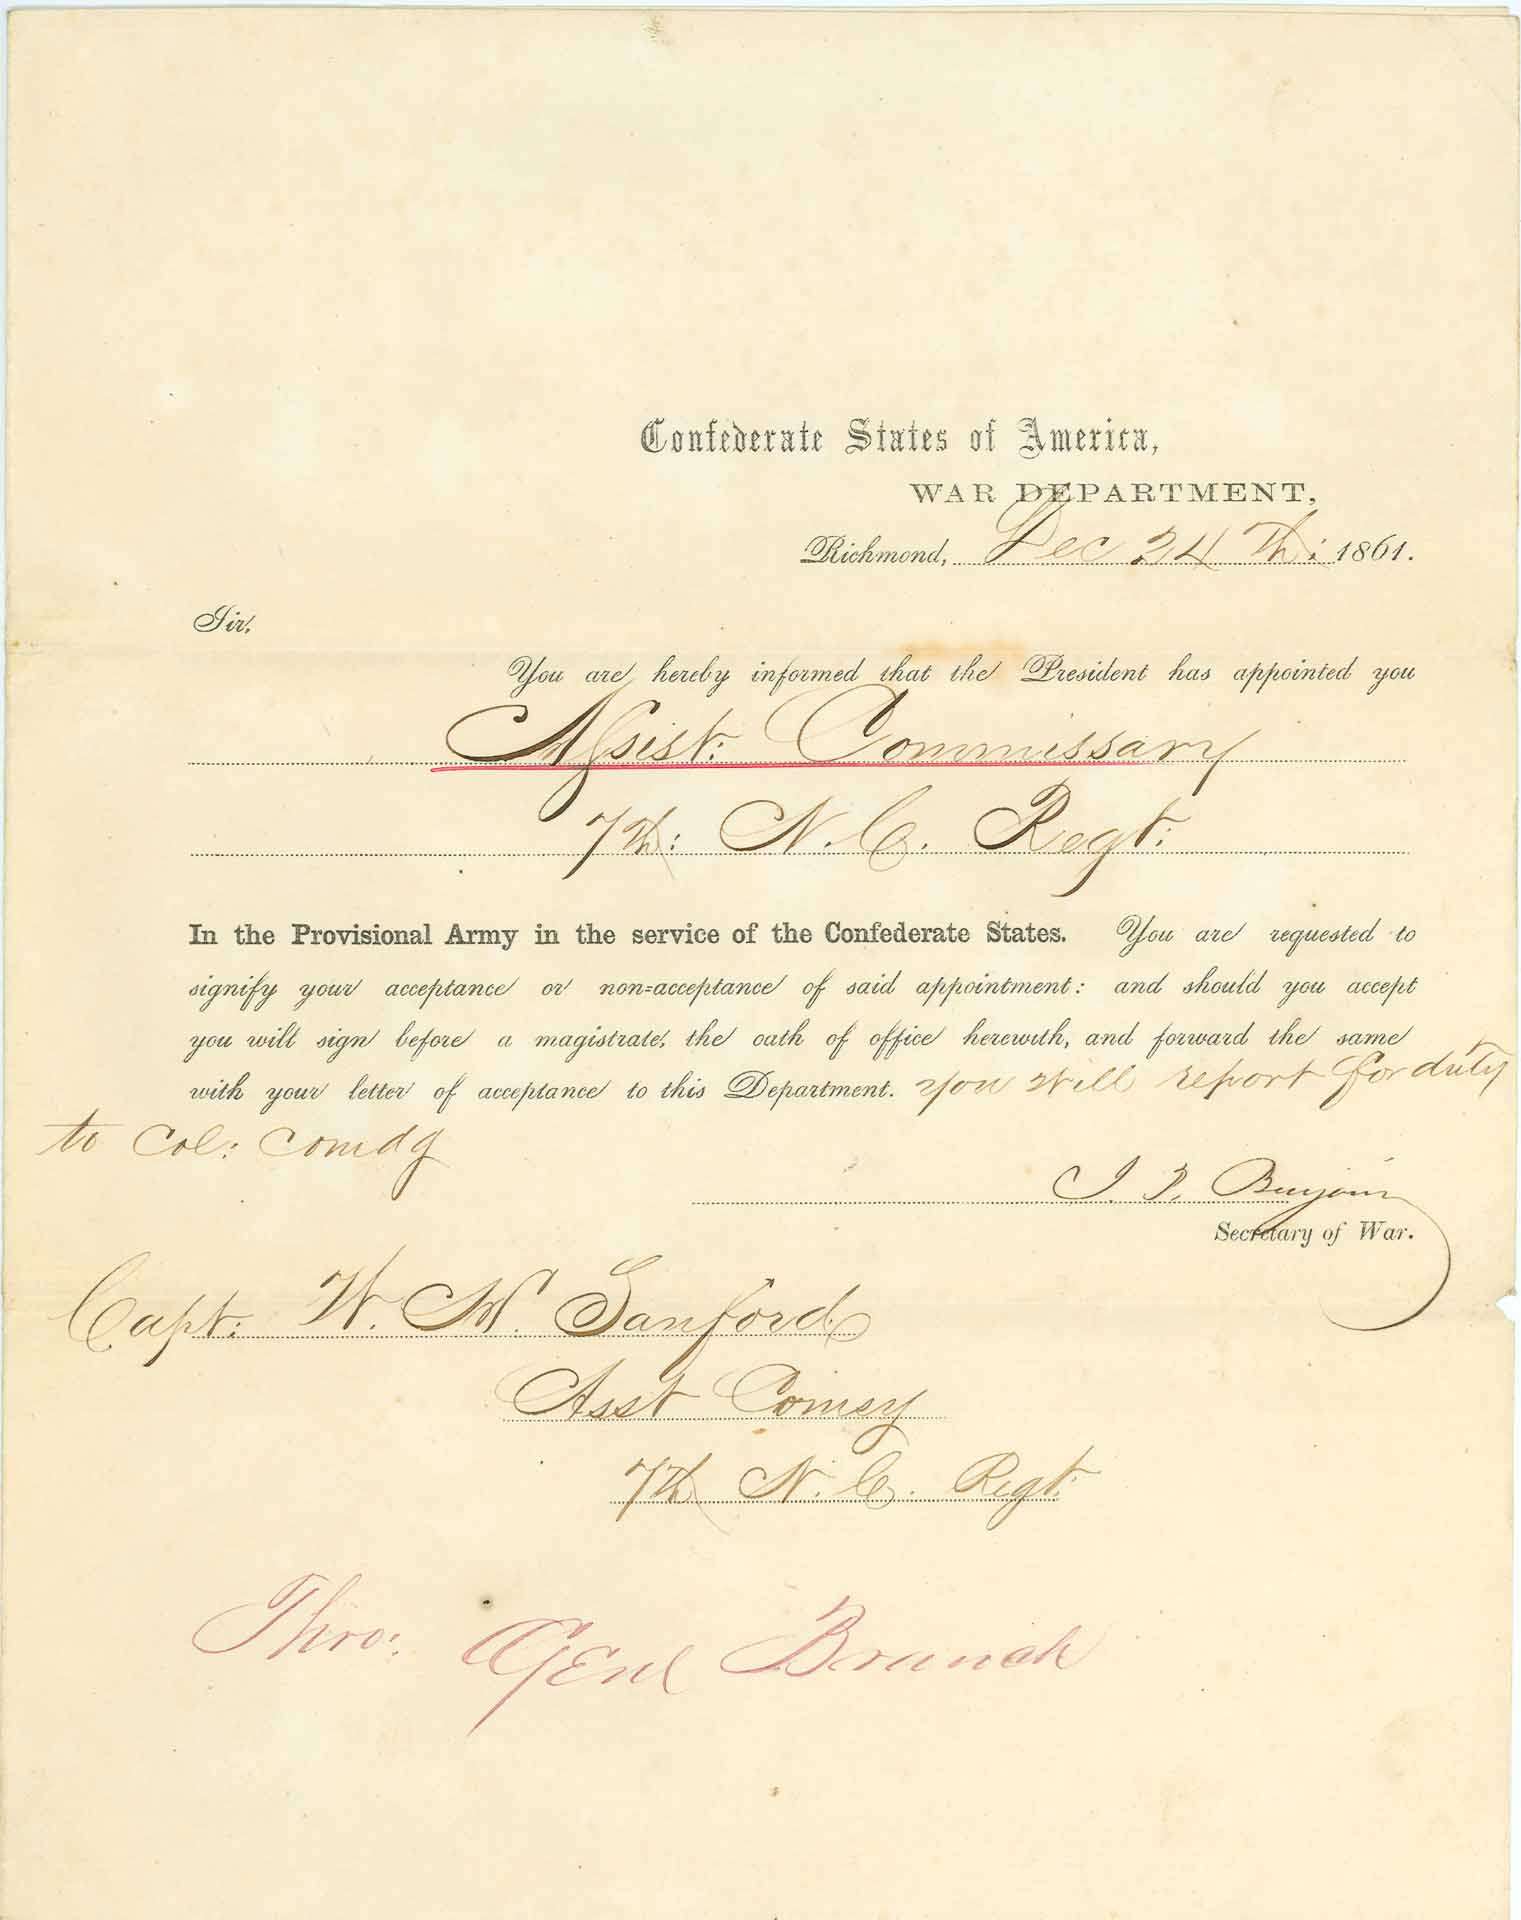 Confederate States of America,
WAR DEPARTMENT,
Richmond, Dec 24th: 1861.
Sir,
You are hereby informed that the President has appointed you
Assist: Commissary
7th: N. C. Regt:
In the Provisional Army in the service of the Confederate States. You are requested to
signify your acceptance or non=acceptance of said appointment: and should you accept
you will sign before a magistrate, the oath of office herewith, and forward the same
with your letter of acceptance to this Department. You will report for duty
to Col: Comdg
J. P. Benjamin
Secretary of War.
Capt: W. M. Sanford
Asst Comsy
7th N. C. Regt:
Thro: Genl Branch